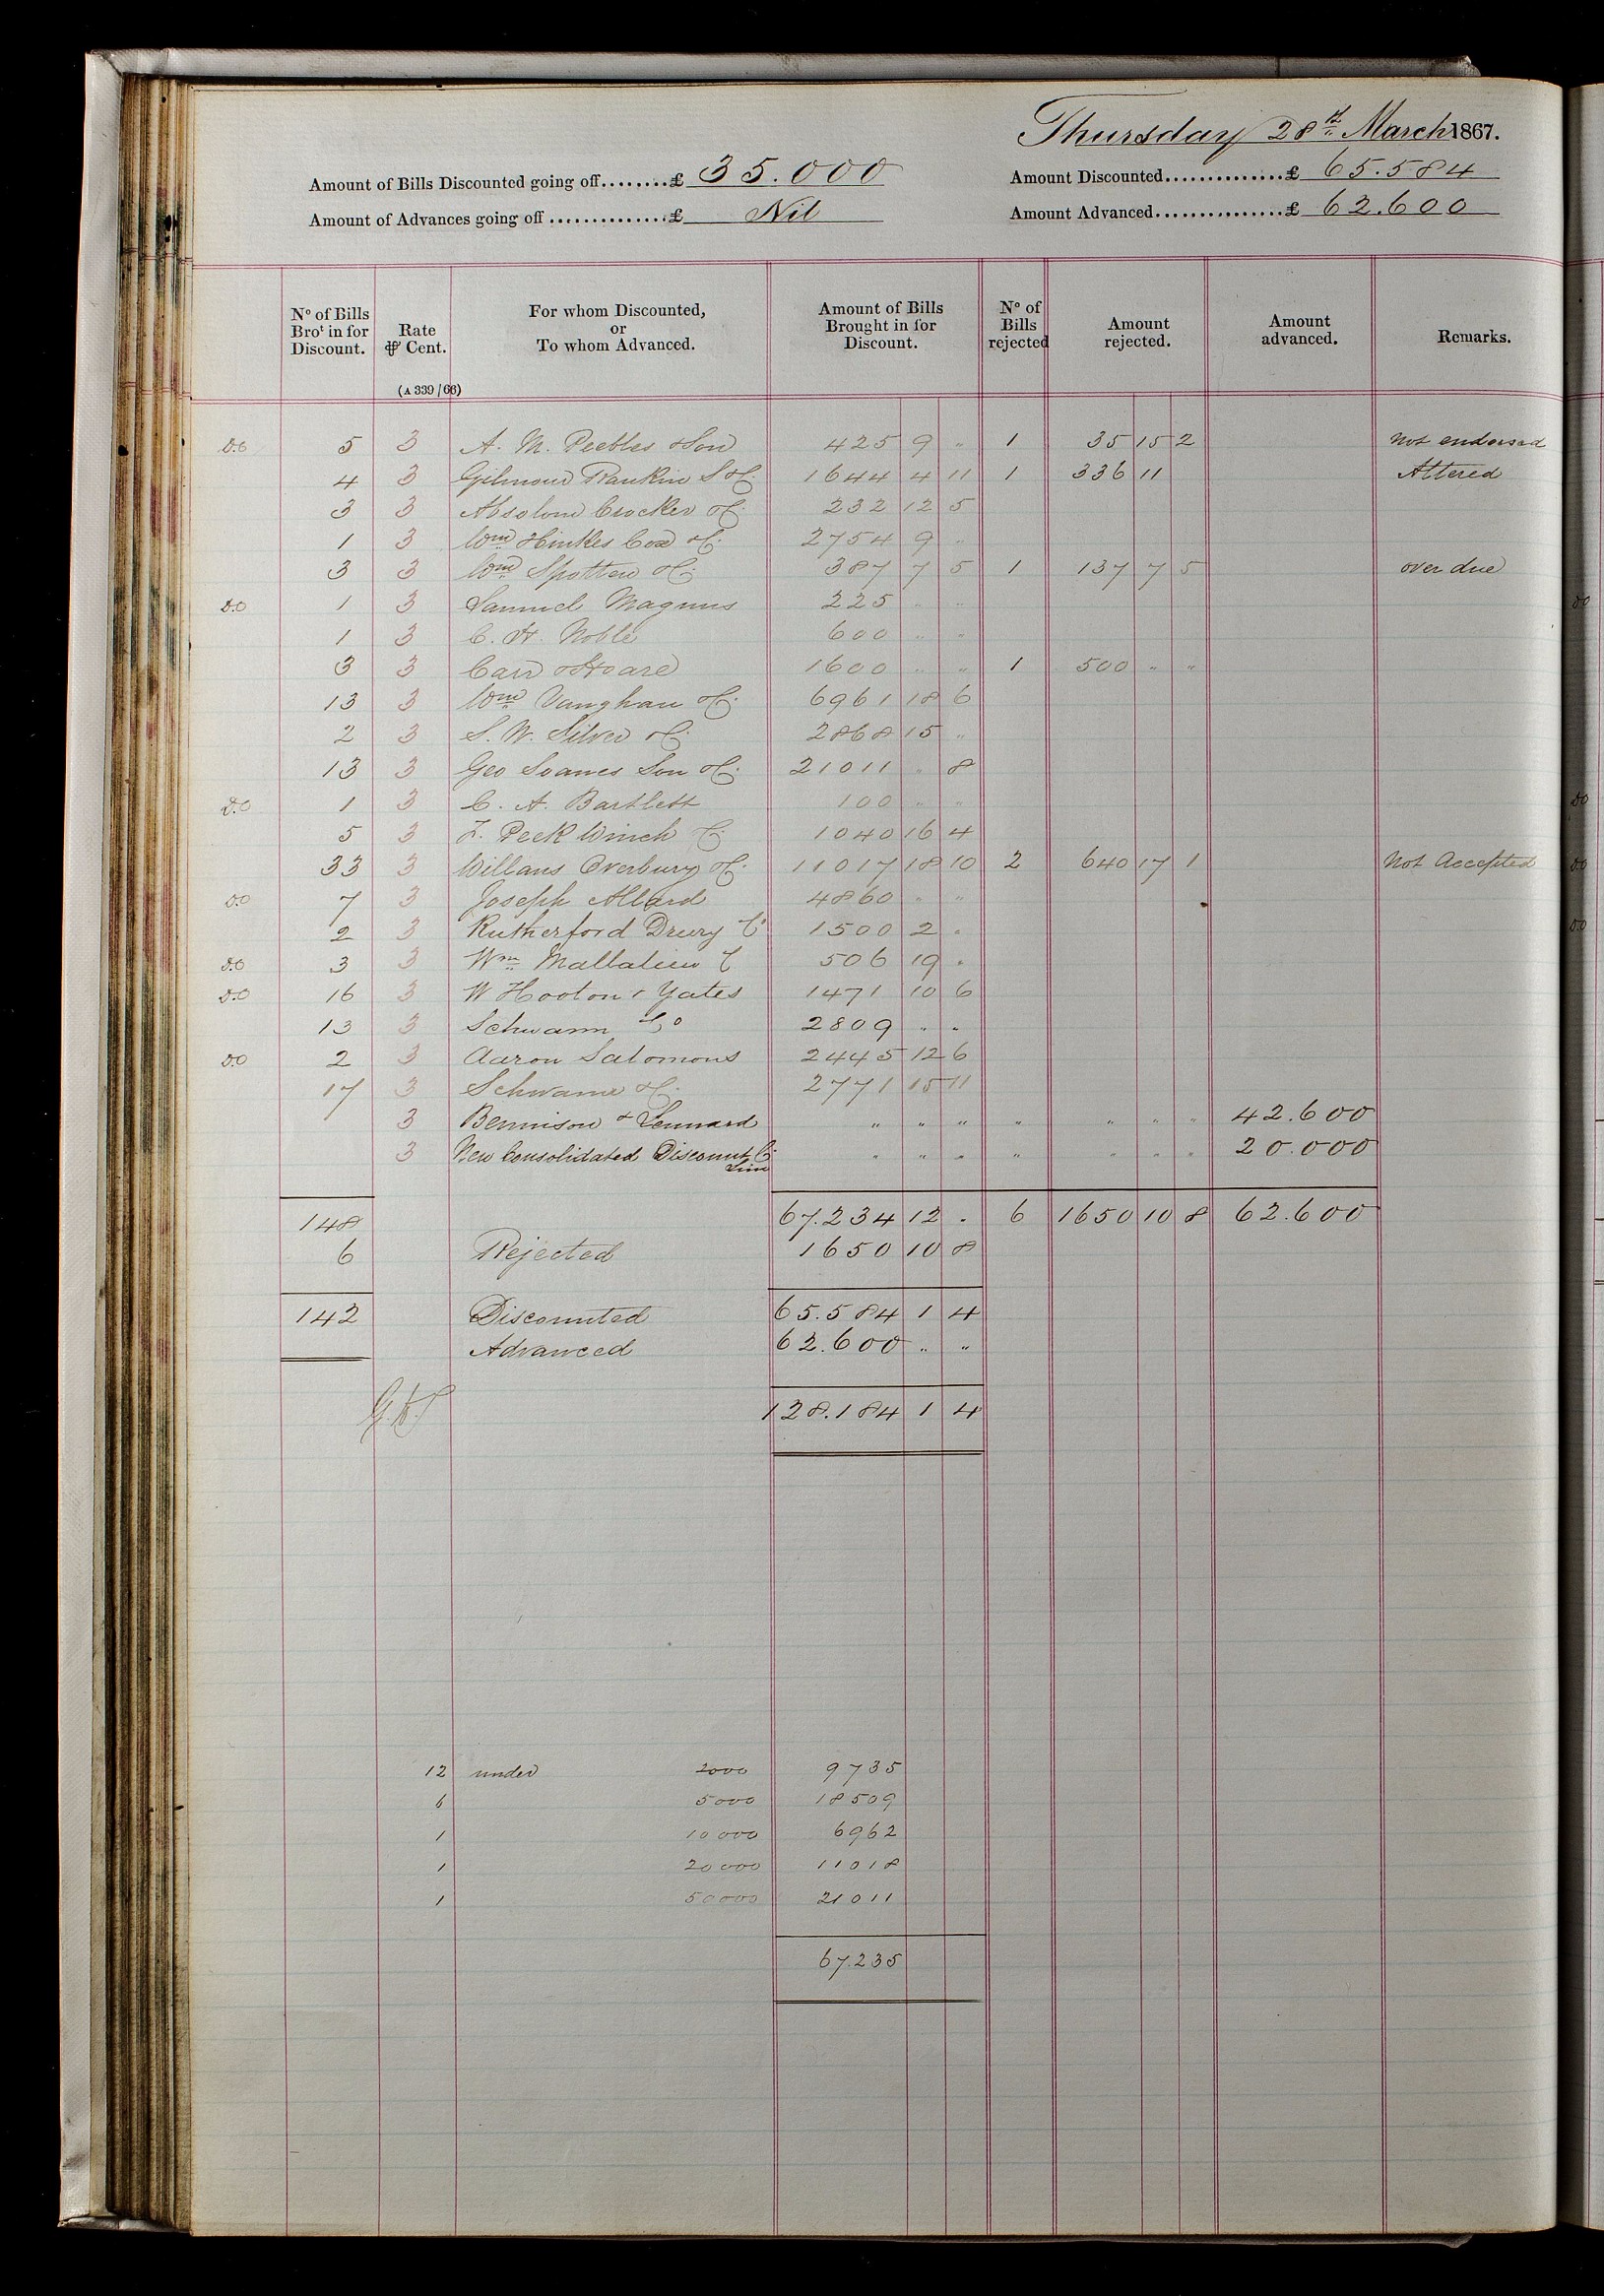 Thursday 28th March 1867.
Amount of Bills Discounted going off........£ 35.000
Amount Discounted..............£ 65.584
Amount of Advances going off..............£ Nil
Amount Advanced...............£ 62.600
No of Bills Brot in for Discount. Rate ⅌ Cent. For whom Discounted, or To whom Advanced. Amount of Bills Brought in for Discount. No of Bills rejected Amount rejected. Amount advanced. Remarks.
(A 339/66)
Do 5 3 A. M. Peebles & Son 425 9 " 1 35 15 2 Not endorsed
4 3 Gilmour Rankin S & Co. 1644 4 11 1 336 11 Altered
3 3 Absolom Crocker & Co. 232 12 5
1 3 Wm Hinkes Cox & Co. 2754 9 "
3 3 Wm Spotten & Co. 387 7 5 1 137 7 5 over due
Do 1 3 Samuel Magnus 225 " "
1 3 C. H. Noble 600 " "
3 3 Carr & Hoare 1600 " " 1 500 " "
13 3 Wm Vaughan & Co. 6961 18 6
2 3 S. W. Silver & Co. 2868 15 "
13 3 Geo Soames Son & Co. 21011 " 8
Do 1 3 C. A. Bartlett 100 " "
5 3 F. Peek Winch & Co. 1040 16 4
33 3 Willans Overbury & Co. 11017 18 10 2 640 17 1 Not Accepted
Do 7 3 Joseph Allard 4860 " "
2 3 Rutherford Drury Co 1500 2 "
Do 3 3 Wm Mallalieu Co 506 19 "
Do 16 3 W Hooton & Yates 1471 10 6
13 3 Schwann & Co 2809 " "
Do 2 3 Aaron Salomons 2445 12 6
17 3 Schwann & Co. 2771 15 11
3 Bennison & Lennard " " " " " " " 42.600
3 New Consolidated Discount Co. " " " " " " " 20.000
Lim
148 67.234 12 . 6 1650 10 8 62.600
6 Rejected 1650 10 8
142 Discounted 65.584 1 4
Advanced 62.600 " "
128.184 1 4
12 under 2000 9735
6 5000 18509
1 10000 6962
1 20000 11018
1 50000 21011
67.235